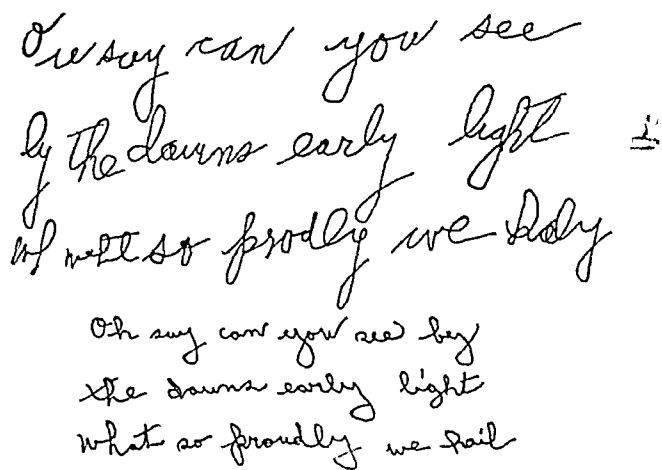 Ou say can you see
by the dawns early light
wh whht so prodly we haly
Oh say can you see by
the dawns early light
What so proudly we hail